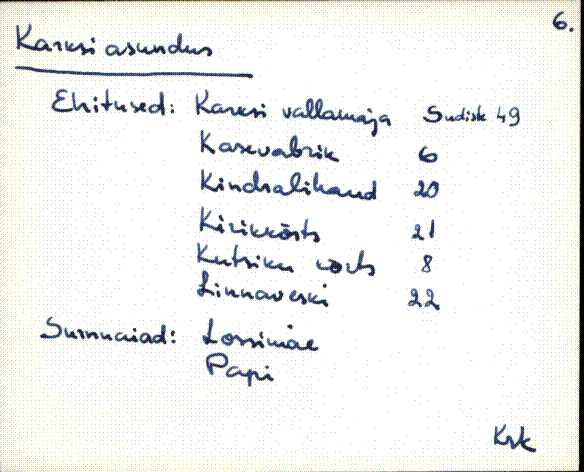 6.
Karksi asundus
Ehitused: Karksi vallamaja Sudiste 49
Kasevabrik 6
Kindralihaud 20
Kirikkõrts 21
Kutsiku kõrts 8
Linnaveski 22
Surnuaiad: Lossimäe
Papi
Krk